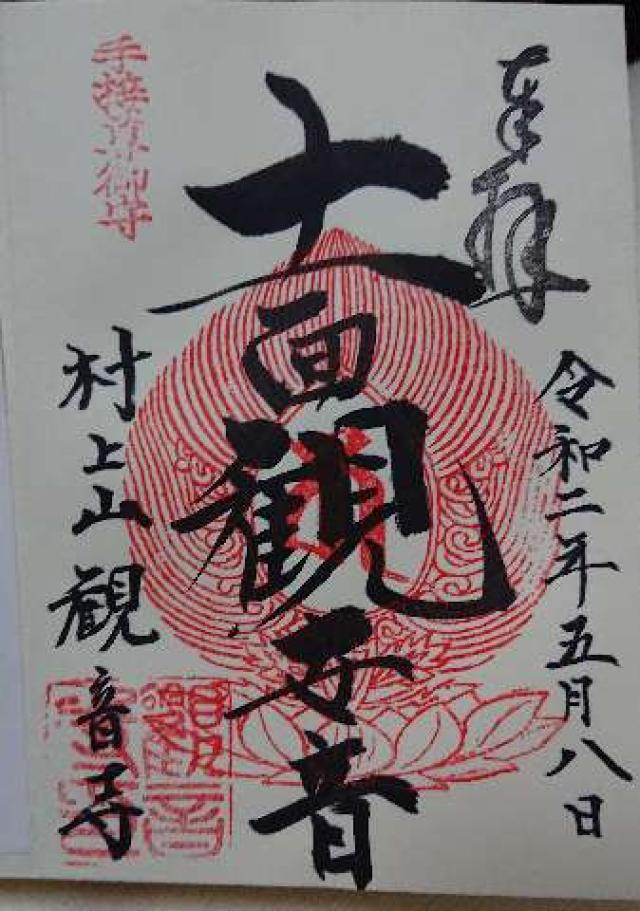 奉拝
令和二年五月八日
十一面観世音
手接草御守
村上山観音寺